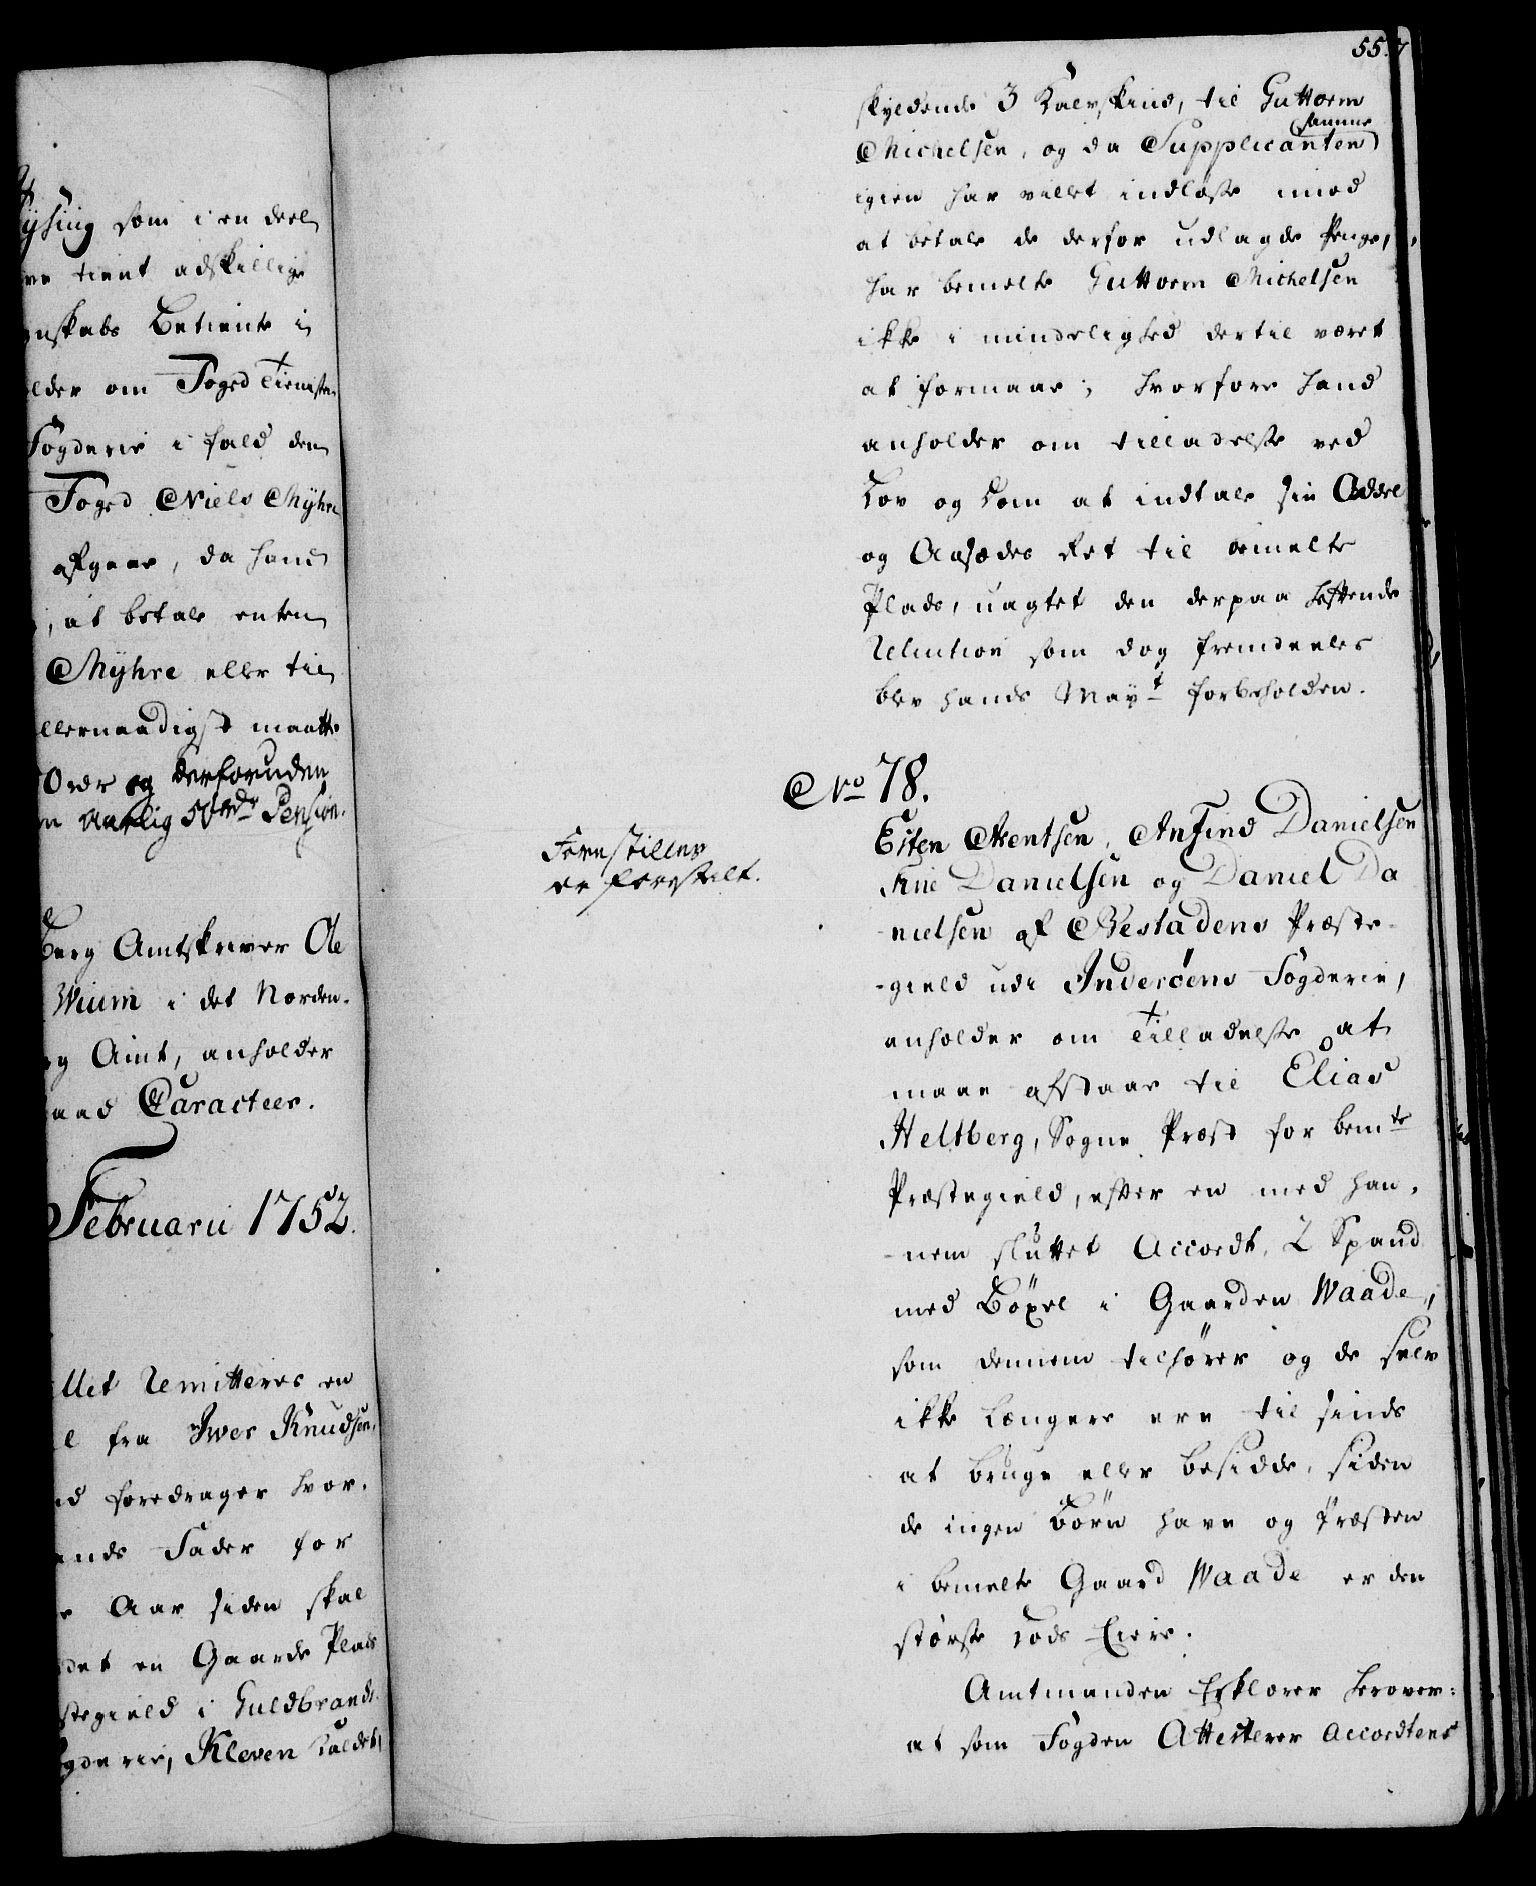 ysing som i en deel
tient adskillige
nskabs Betiente i
lder om Foged Tieniste
Fogderie i fald den
Foged Niels Myhre
afgaar, da hand
, at betale enten
Myhre eller til
llernaadigst maatte
Orde og derforuden
Aarlig 50 rdr Pension.
berg Amtskriver Ole
Wium i det Norden-
g Amt, anholder
aad Caracteer.
Februarii 1752.
llet Remitteres en
l fra Iver Knudsen,
d foredrager hvor-
ands Fader for
Aar siden skal
det en Gaards Plads
stegield i Guldbrands-
gderie, Kleven kaldet,
557
skyldende 3 Kalvskind, til Guttorm
Michelsen, og da Supplicanten samme
igien har villet indløse imod
at betale de derfor udlagde Penge,
har bemelte Guttorm Michelsen
ikke i mindelighed dertil været
at formaae; hvorfore hand
anholder om tilladelse ved
Lov og Dom at indtale sin Oddel
og Aasædes Ret til ommelte
Plads, uagtet den derpaa heftende
Reluition som dog fremdeeles
blev hands Mayt forbeholden.
No 78.
Forestilles
er forestilt.
Esten Arentsen, Anfind Danielsen
Fine Danielsen og Daniel Da
nielsen af Bestadens Præste-
-gield udi Inderöens Fögderie,
anholder om Tilladelse at
maae afstaae til Elias
Heltberg, Sogne Præst for bemte
Præstegield, efter en med han-
-nem sluttet Accordt, 2 Spand
med Böxel i Gaarden Waade,
som dennem tilhører og de selv
ikke længere ere til sinds
at bruge eller besidde, siden
de ingen Börn have og Præsten
i bemelte Gaard Waade er den
störste Lods Eiere.
Amtmanden Erklærer herover:
at som Fogden Attesterer Accordtens